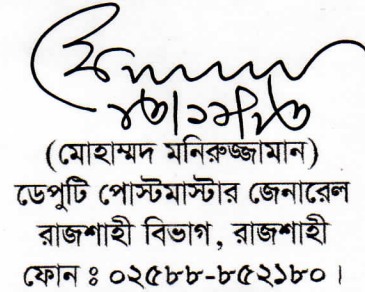 (মোহাম্মদ মনিরুজ্জামান)
ডেপুটি পোস্টমাস্টার জেনারেল
রাজশাহী বিভাগ, রাজশাহী
ফোন ঃ ০২৫৮৮-৮৫২১৮০।